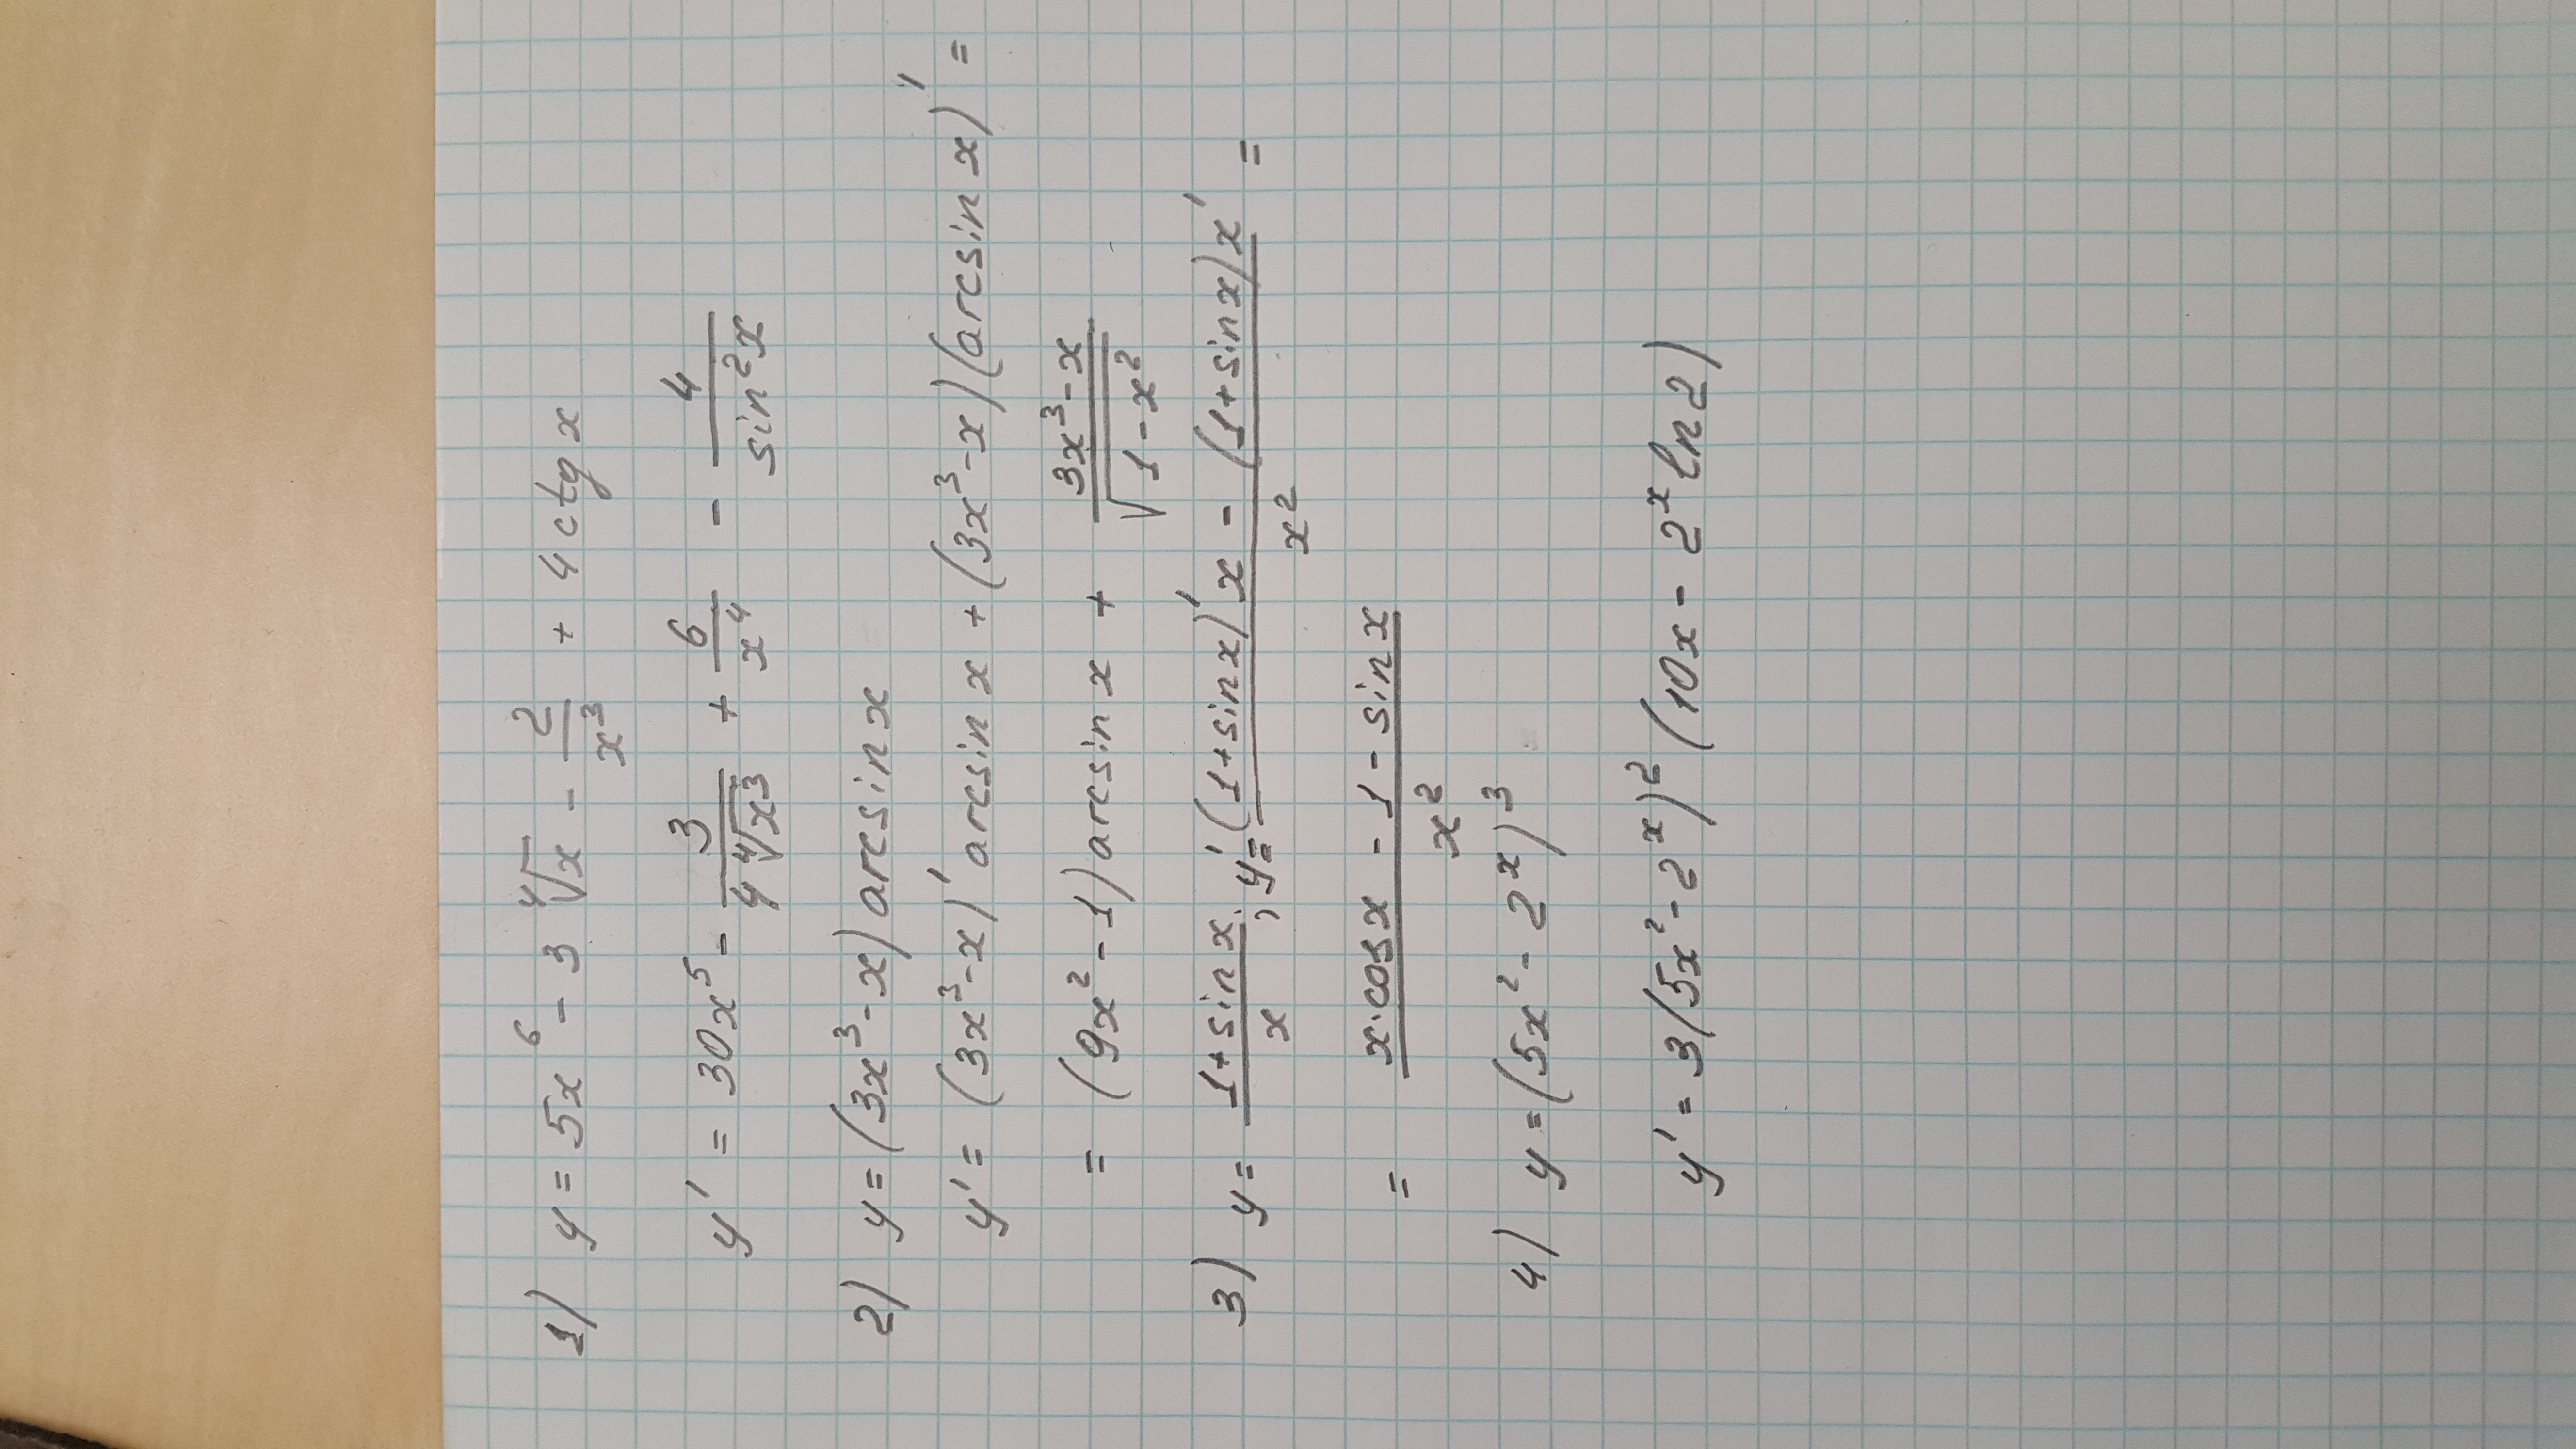 1) y = 5x⁶ - 3 ⁴√x - 2/x³ + 4 ctg x
y' = 30x⁵ - 3/(4 ⁴√x³) + 6/x⁴ - 4/sin²x
2) y = (3x³ - x) arcsin x
y' = (3x³ - x)' arcsin x + (3x³ - x)(arcsin x)' =
= (9x² - 1) arcsin x + (3x³ - x)/√(1 - x²)
3) y = (1 + sin x)/x ; y' = ((1 + sin x)' x - (1 + sin x) x')/x² =
= (x · cos x - 1 - sin x)/x²
4) y = (5x² - 2ˣ)³
y' = 3(5x² - 2ˣ)² (10x - 2ˣ ln 2)